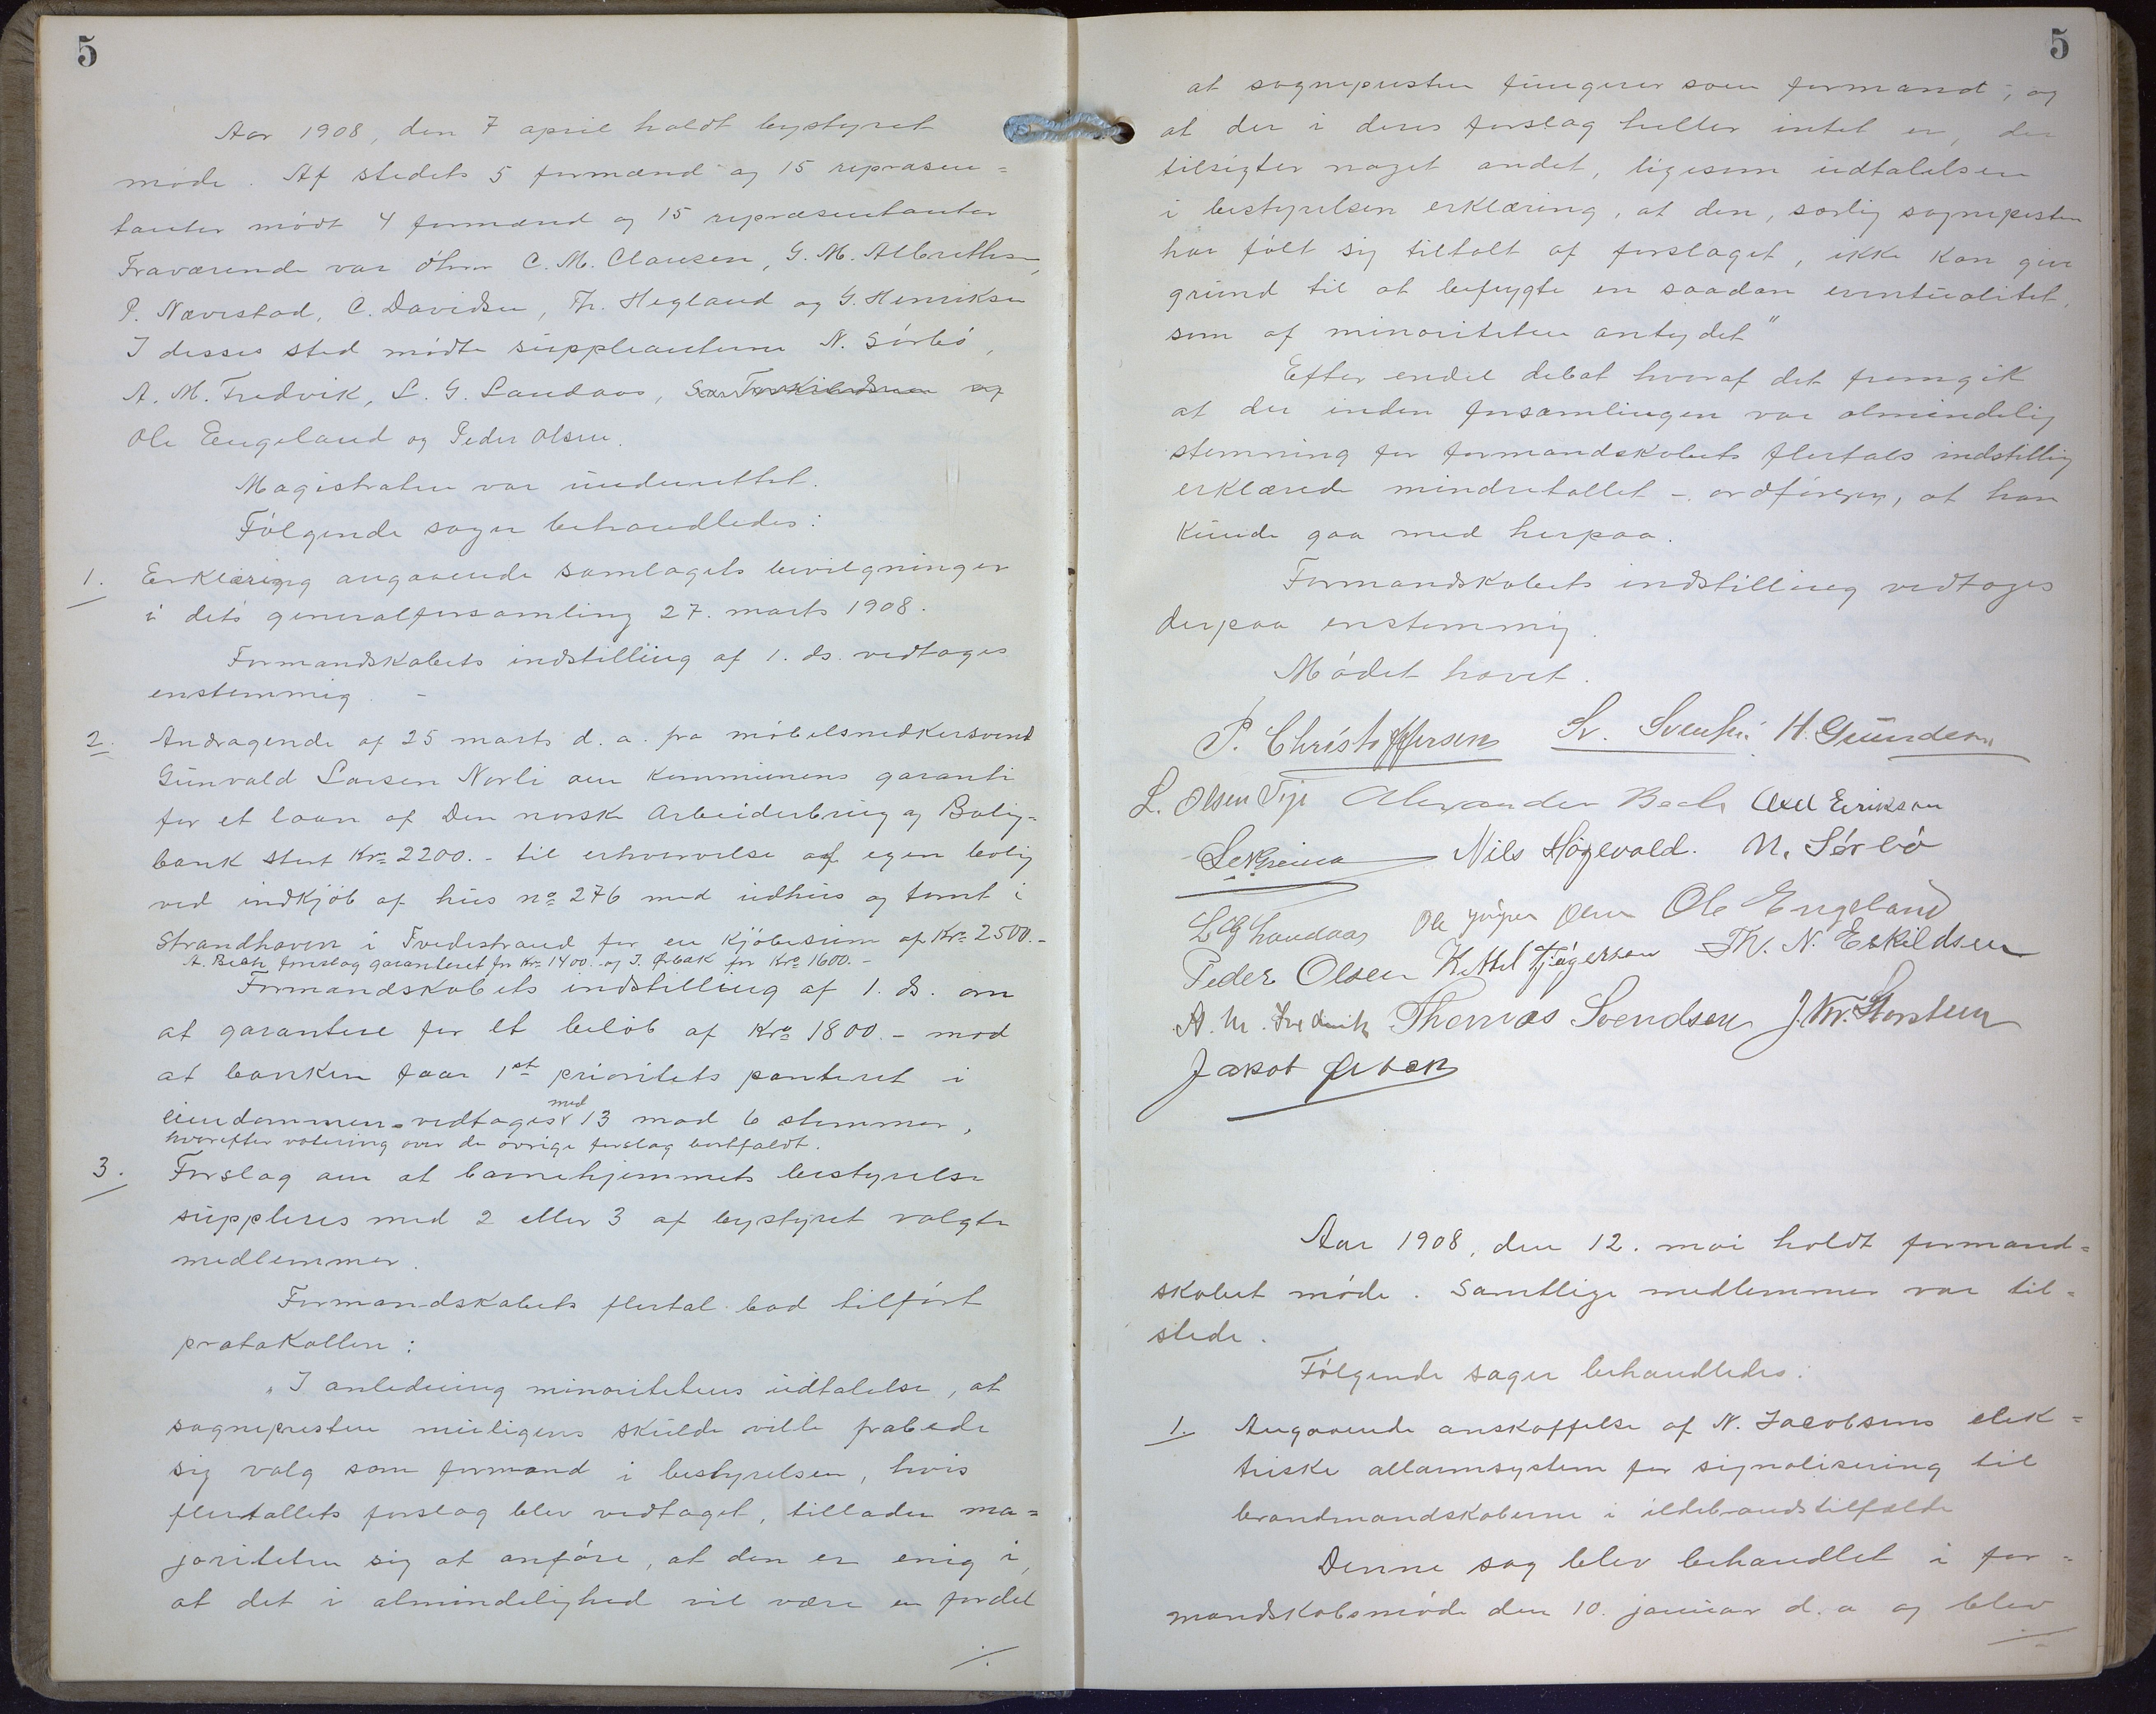 5
Aar 1908, den 7 april holdt bystyret
møde. Af stedets 5 formænd og 15 repræsen=
tanter mødt 4 formænd og 15 repræsentanter
Fraværende var dhrr C. M. Clausen, G. M. Albrethsen,
P. Næverstad, C. Davidsen, Th. Hegland og G. Henriksen
I disses sted mødte suppleanterne N. Sørbø,
A. M. Fredvik, L. G. Landaas, og
Ole Engeland og Peder Olsen.
Magistraten var underrettet.
Følgende sager behandledes:
1. Erklæring angaaende samlagets bevilgninger
i dets generalforsamling 27. marts 1908.
Formandskabets indstilling af 1. ds. vedtoges
enstemmig. -
2. Andragende af 25 marts d. a. fra møbelsnedkersvend
Gunvald Larsen Norli om kommunens garanti
for et laan af Den norske Arbeiderbrug og Bolig=
bank stort Kr. 2200.- til erhvervelse af egen bolig
ved indkjøb af hus no 276 med udhus og tomt i
Strandhaven i Tvedestrand for en kjøbesum af Kr. 2500.-
A. Bech foreslog garanteret for Kr. 1400.- og J. Ørbæk for Kr. 1600.-
Formandskabets indstilling af 1. ds. om
at garantere for et beløb af Kr. 1800.- mod
at banken faar 1st prioritets panteret i
eiendommen vedtoges med 13 mod 6 stemmer,
hvorefter votering over de øvrige forslag bortfaldt.
3. Forslag om at barnehjemmets bestyrelse
suppleres med 2 eller 3 af bystyret valgte
medlemmer.
Formandskabets flertal bad tilført
protokollen:
"I anledning minoritetens udtalelse, at
sognepresten muligens skulde ville frabede
sig valg som formand i bestyrelsen, hvis
flertallets forslag blev vedtaget, tillader ma=
joriteten sig at anføre, at den er enig i,
at det i almindelighed vil være en fordel
./.
5
at sognepresten fungerer som formand, og
at der i deres forslag heller intet er, der
tilsigter noget andet, ligesom udtalelsen
i bestyrelsen erklæring, at den, særlig sognepresten
har følt sig tiltalt af forslaget, ikke kan give
grund til at befrygte en saadan eventualitet,
som af minoriteten antydet"
Efter endel debat hvoraf det fremgik
at der inden forsamlingen var almindelig
stemning for formandskabets flertals indstilling
erklærede mindretallet - ordføreren, at han
kunde gaa med herpaa.
Formandskabets indstilling vedtoges
derpaa enstemmig.
Mødet hævet.
P. Christoffersen H. Gundersen
L. Olsen Alexander Bech Axel Eriksen
Nils Høgevold. N. Sørbø
L G Landaas Ole Olsen Ole Engeland
Peder Olsen Kittel Th. N. Eskildsen
A. M. Fredvik Thomas Svendsen J. Kr. Storsteen
Jakob Ørbæk
Aar 1908, den 12. mai holdt formand=
skabet møde. Samtlige medlemmer var til=
stede.
Følgende sager behandledes:
1. Angaaende anskaffelse af N. Jacobsens elek=
triske allarmsystem for signalisering til
brandmandskaberne i ildebrandstilfælde
Denne sag blev behandlet i for=
mandskabsmøde den 10. januar d. a og blev
./.